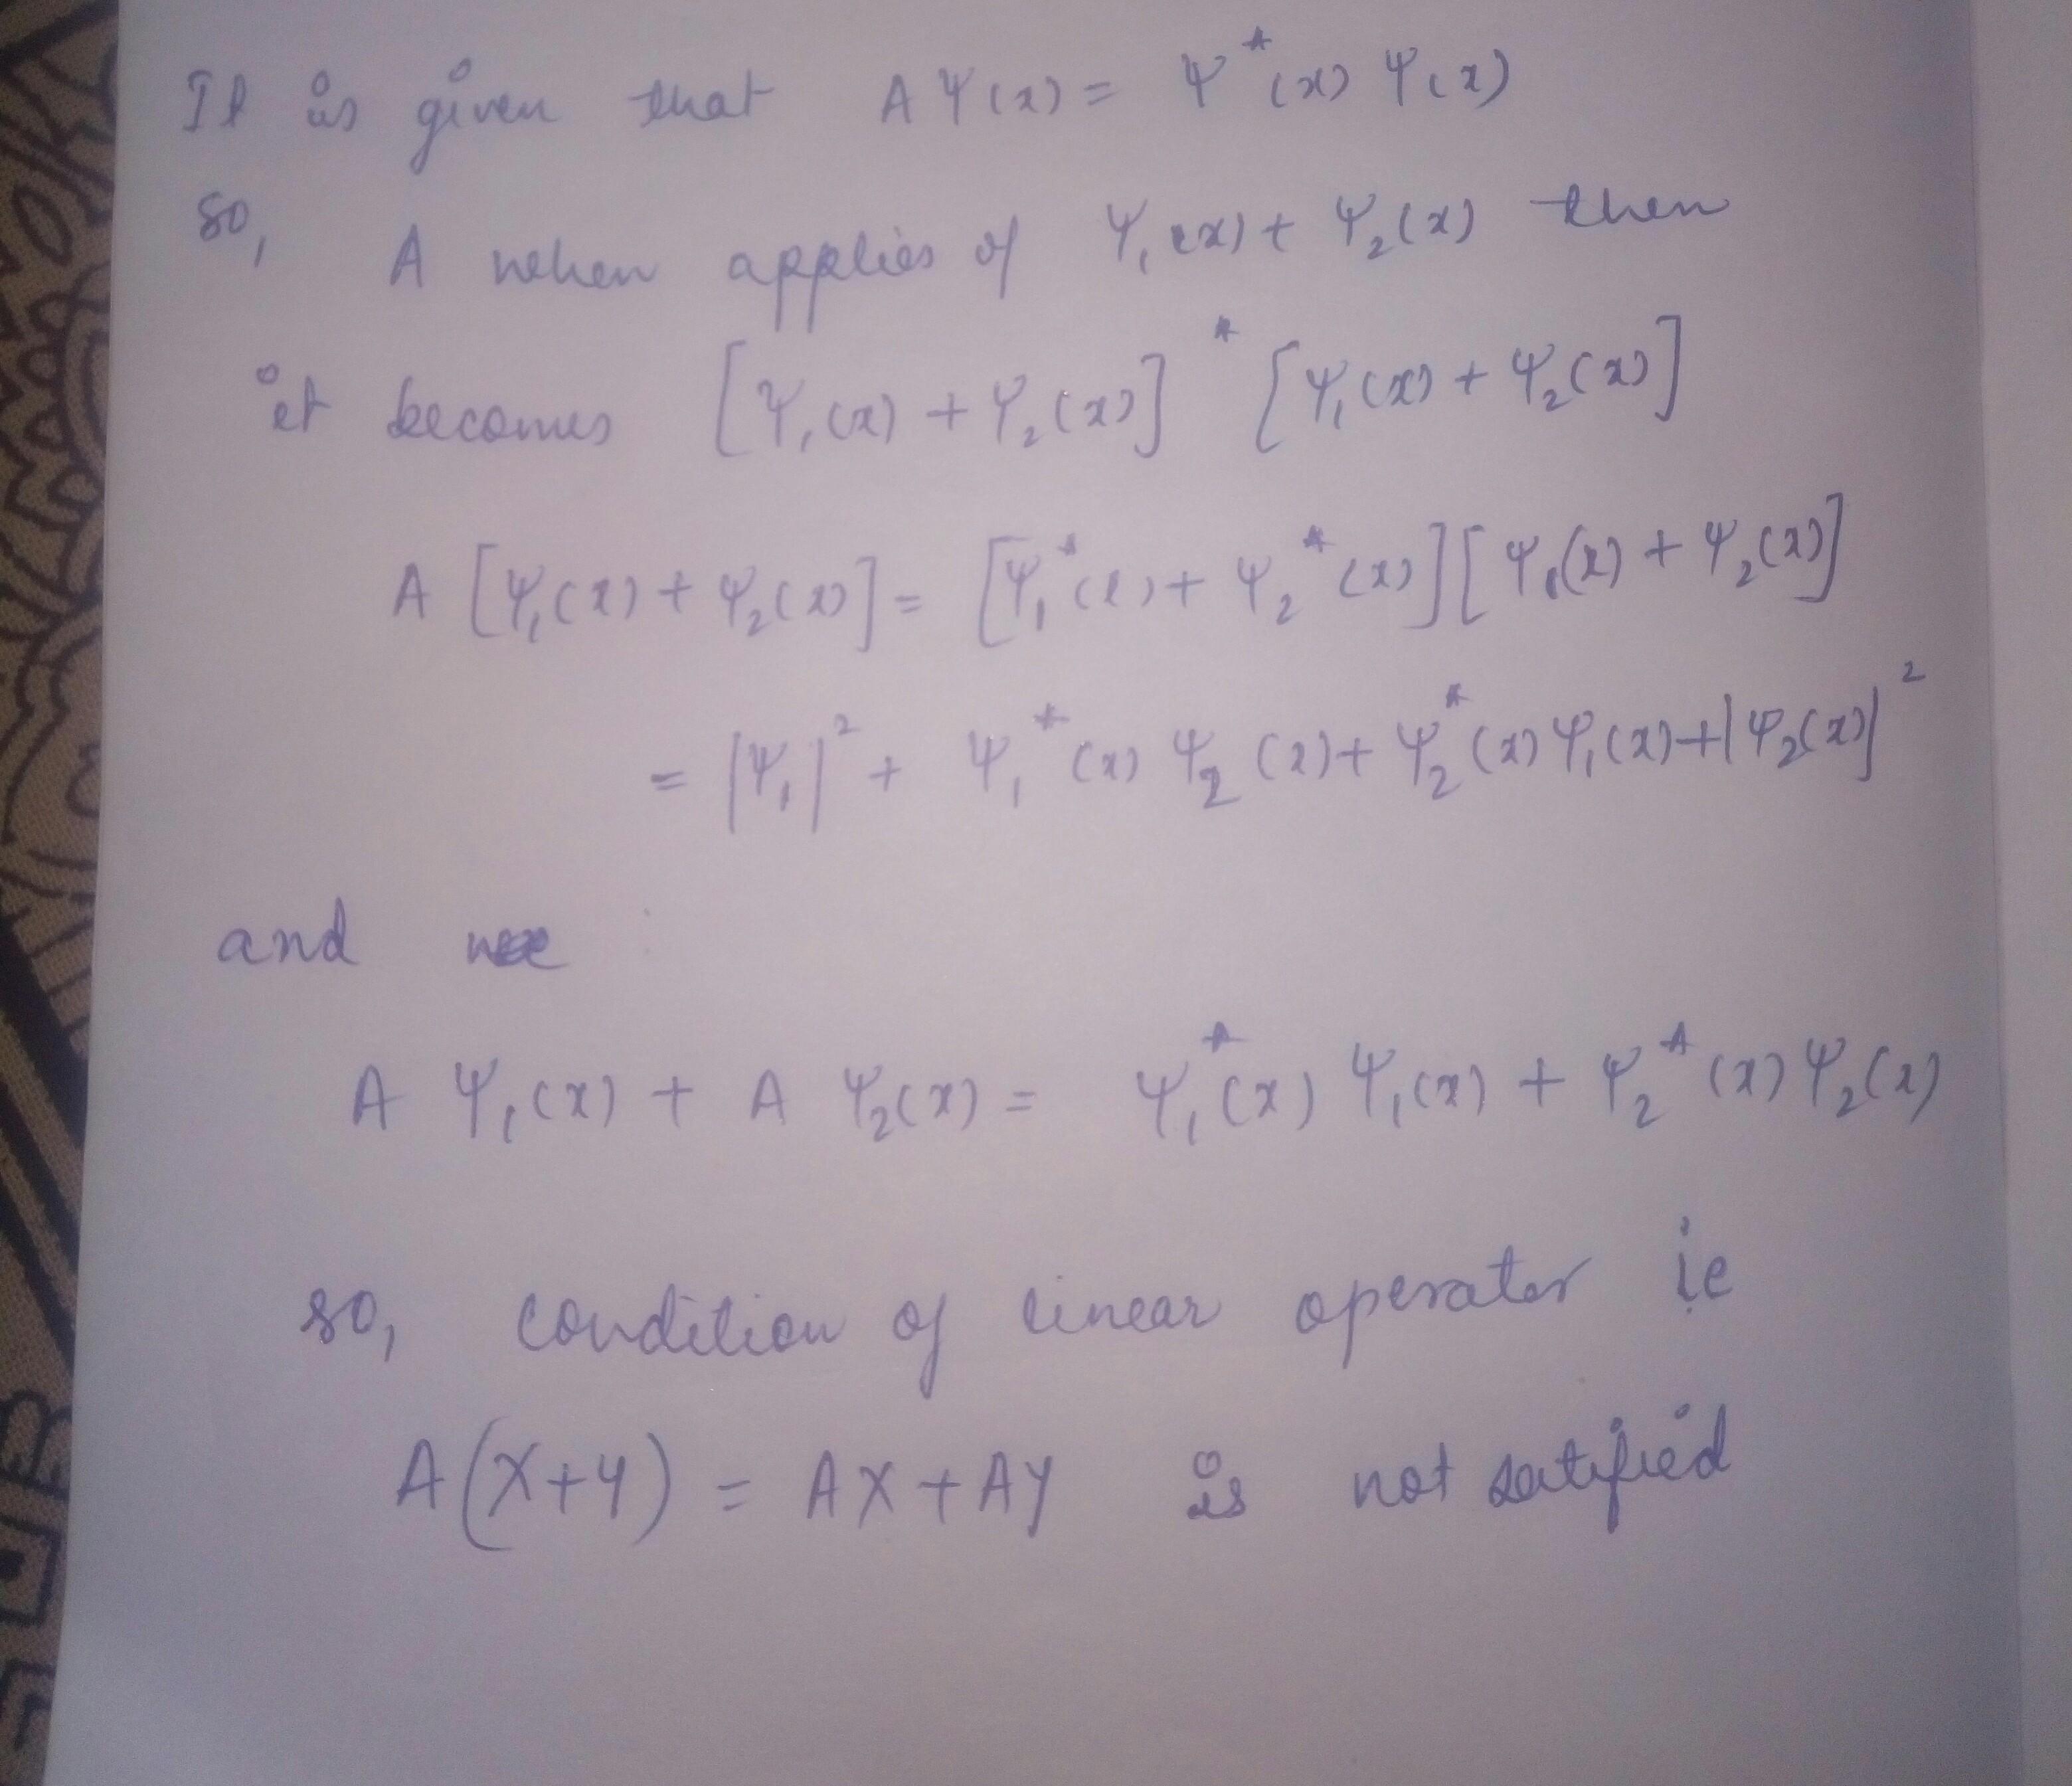 It is given that A Ψ(x) = Ψ*(x) Ψ(x)
so, A when applies of Ψ₁(x) + Ψ₂(x) then
it becomes [Ψ₁(x) + Ψ₂(x)]* [Ψ₁(x) + Ψ₂(x)]
A [Ψ₁(x) + Ψ₂(x)] = [Ψ₁*(x) + Ψ₂*(x)][Ψ₁(x) + Ψ₂(x)]
= |Ψ₁|² + Ψ₁*(x) Ψ₂(x) + Ψ₂*(x) Ψ₁(x) + |Ψ₂(x)|²
and
A Ψ₁(x) + A Ψ₂(x) = Ψ₁*(x) Ψ₁(x) + Ψ₂*(x) Ψ₂(x)
so, condition of linear operator ie
A(X+Y) = AX + AY is not satified